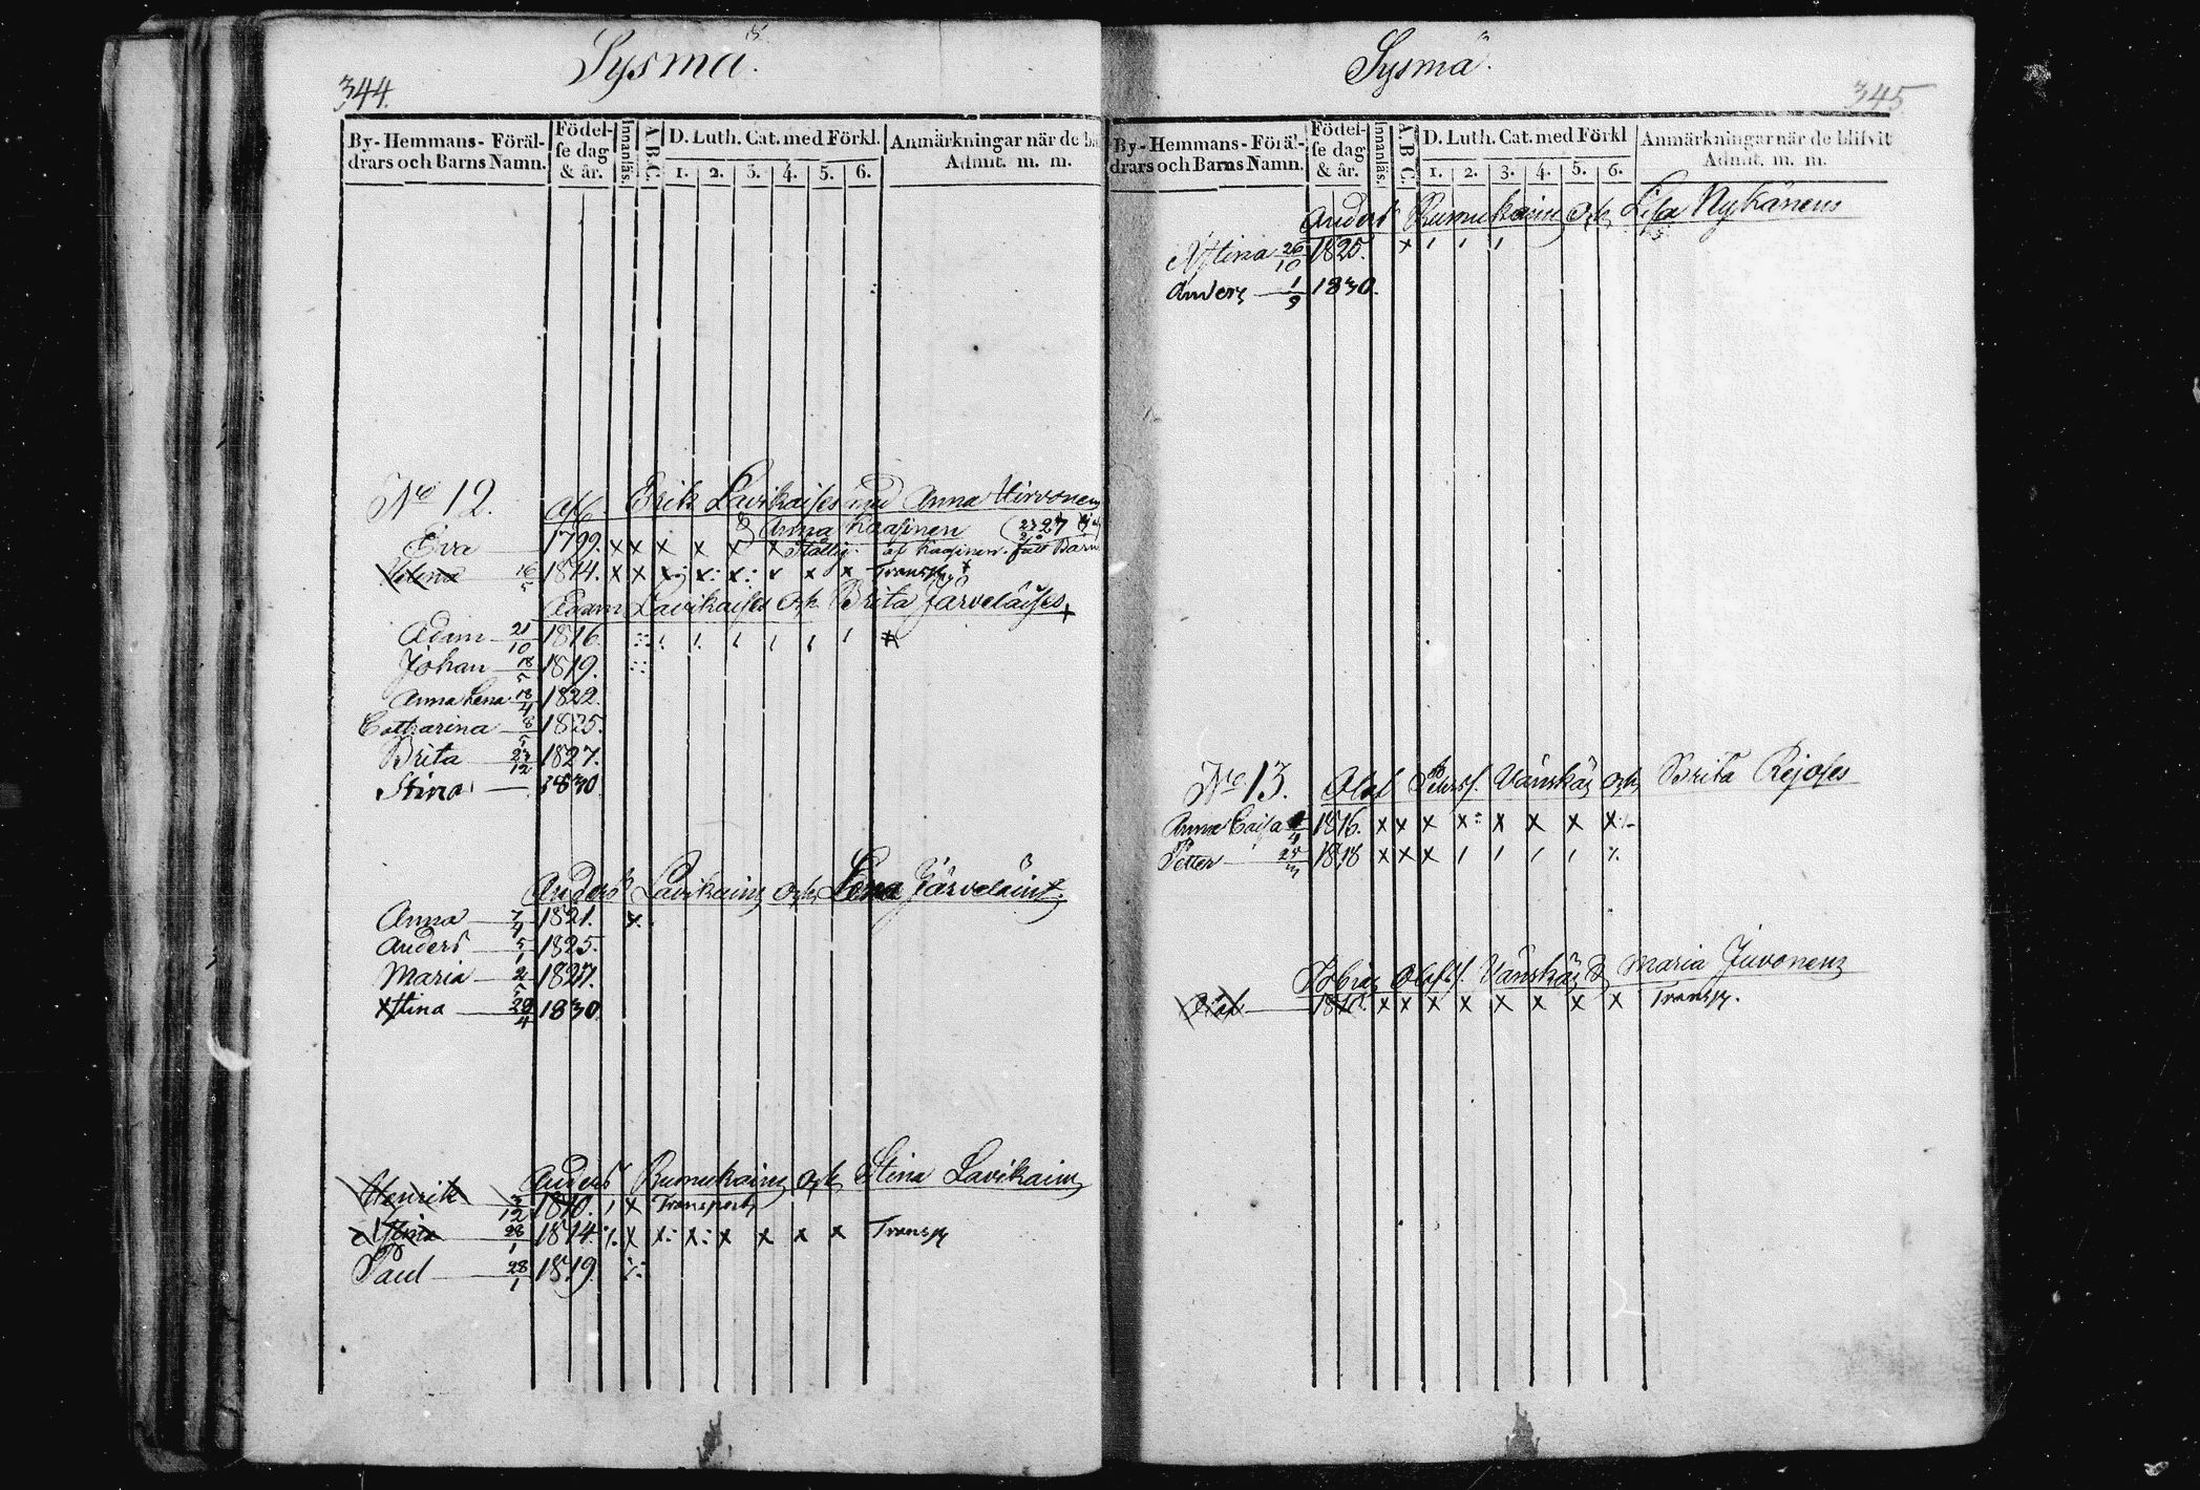 344.
Sysmä.
By- Hemmans- Föräl-
drars och Barns Namn.
Födel-
se dag
& år.
Innanläs.
A.B.C.
D. Luth. Cat. med Förkl.
1. 2. 3. 4. 5. 6.
Anmärkningar när de
Admit. m. m.
No 12. Erik Lavikaises Anna Hirvonens
Anna Kaasinen
Eva 1799. x x x x x x af Kaasinen. Barn
Helena 16/5 1814. x x x x x Transp.
Adam Lavikaises och Brita Järveläises
Adam 21/10 1816.
Johan 18/5 1819.
Anna Lena 18/4 1822.
Catharina 8/5 1825.
Brita 27/12 1827.
Stina 1830
Anders Lavikains och Lena Järveläins
Anna 7/4 1821. x
Anders 5/1 1825.
Maria 2/5 1827.
Xstina 29/4 1830
Anders Rumukains och Stina Lavikains
Henrik 3/12 1810. x Transport
Xstina 28/1 1814 x x x x x x x Transp
Paul 28/1 1819.
Sysmä.
345
By- Hemmans- Föräl-
drars och Barns Namn.
Födel-
se dag
& år.
Innanläs.
A.B C.
D. Luth. Cat. med Förkl
1. 2. 3. 4. 5. 6.
Anmärkningar när de blifvit
Admit. m. m.
Anders Rumukains och Lisa Nykänens
Xstina 26/10 1825. x
Anders 1/9 1830.
No 13. Olof Peterss. Vänskäs och Brita Rejoses
Anna Caisa 1816. x x x x x x x x
Petter 1818 x x x
Tobias Olofss. Vänskäs & Maria Juvonens
Olof 1810. x x x x x x x x Transp.